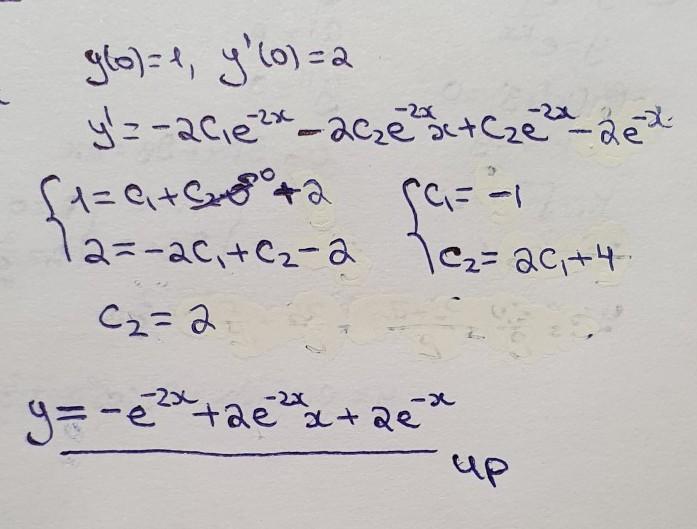 y(0)=1, y'(0)=2
y' = -2C₁e⁻²ˣ - 2C₂e⁻²ˣx + C₂e⁻²ˣ - 2e⁻ˣ
{1 = C₁ + C₂·0 + 2 {C₁ = -1
{2 = -2C₁ + C₂ - 2 {C₂ = 2C₁ + 4
C₂ = 2
y = -e⁻²ˣ + 2e⁻²ˣx + 2e⁻ˣ
чр